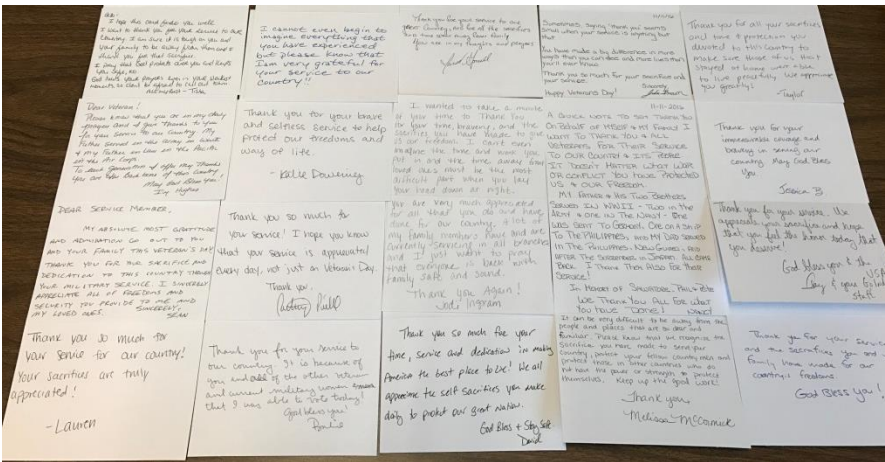 I hope this card finds you well
I want to thank you for your service to our
Country. I am sure it is tough on you and
your family to be away from them and I
thank you for that sacrifice.
I pray that God protects you and God keeps
you safe.
I cannot even begin to
imagine everything that
you have experienced
but please know that
I am very grateful for
your service to our
country!!
Thank you for your service to our
Country, and for all the sacrifices
You are in my thoughts and prayers
Sometimes, saying "thank you" seems
small when your service is anything
but that.
You have made a big difference in more
ways than you can see and more lives than
you'll ever know.
Thank you so much for your sacrifice and
your service.
Happy Veterans Day!
Sincerely,
Thank you for all your sacrifices
and time & protection you
devoted to this country to
make sure those of us that
stayed at home were able
to live peacefully. We appreciate
you greatly!
Taylor
Dear Veteran!
Please know that you are in my daily
prayers and I give thanks to you
for your service to our Country. My
Father served in the army in
& my Father in law in the Pacific
in the Air Corps.
You are the back bone of this Country,
May God Bless You!
Thank you for your brave
and selfless service to help
protect our freedoms and
way of life.
- Katie Downing
I wanted to take a minute
of your time to Thank You
for your time, bravery, and the
sacrifices you have made to give
us our freedom. I can't even
imagine the time and work you
put in and the time away from
loved ones must be the most
difficult part when you lay
your head down at night.
You are very much appreciated
for all that you do and have
done for our country. A lot of
my family members have and are
currently serving in all branches
and I just want to pray
that everyone is back with
family safe and sound.
Thank you Again!
Jodi Ingram
11-11-2016
A QUICK NOTE TO SAY THANK YOU
ON BEHALF OF MYSELF & MY FAMILY I
WANT TO THANK YOU & ALL
VETERANS FOR THEIR SERVICE
TO OUR COUNTRY & ITS PEOPLE
IT DOESN'T MATTER WHAT WAR
OR CONFLICT YOU HAVE PROTECTED
US & OUR FREEDOM.
MY FATHER & HIS TWO BROTHERS
SERVED IN WWII - TWO IN THE
ARMY & ONE IN THE NAVY - ONE
WAS SENT TO GERMANY, ONE ON A SHIP
TO THE PHILIPPINES, AND MY DAD SERVED
IN THE PHILIPPINES, NEW GUINEA, AND
AFTER THE SURRENDER IN JAPAN. ALL CAME
BACK. I THANK THEM ALSO FOR THEIR
SERVICE!
IN HONOR OF
WE THANK YOU ALL FOR WHAT
YOU HAVE DONE!
NANCY
Thank you for your
immeasurable courage and
bravery in serving our
country. May God Bless
You
Jessica B
DEAR SERVICE MEMBER,
MY ABSOLUTE MOST GRATITUDE
AND ADMIRATION GO OUT TO YOU
AND YOUR FAMILY THIS VETERAN'S DAY.
THANK YOU FOR YOUR SACRIFICE AND
DEDICATION TO THIS COUNTRY THROUGH
YOUR MILITARY SERVICE. I SINCERELY
APPRECIATE ALL OF FREEDOMS AND
SECURITY YOU PROVIDE TO ME AND
MY LOVED ONES.
SINCERELY,
SEAN
Thank you so much for
your service! I hope you know
that your service is appreciated
every day, not just on Veteran's Day.
Thank you.
Thank you for your service. We
appreciate your sacrifice and hope
that you feel the honor today that
you deserve!
God bless you & the USA
Thank you so much for
your service for our country!
Your sacrifices are truly
appreciated!
- Lauren
Thank you for your service to
our country. It is because of
you and all of the other veteran
and current military women
that I was able to vote today!
God bless you!
Thank you so much for your
time, service and dedication in making
America the best place to live! We all
appreciate the self sacrifices you make
daily to protect our great nation.
God Bless & Stay Safe
David
It can be very difficult to be away from the
people and places that are so dear and
familiar. Please know that we recognize the
sacrifice you have made to serve your
country, protect your fellow countrymen and
protect those in other countries who do
not have the power or strength to protect
themselves. Keep up the good work!
Thank you,
Melissa McCormick
Thank you for your service
and the sacrifices you and
family have made for our
country's freedoms.
God Bless you!